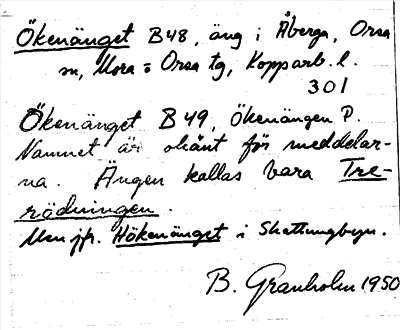 Ökenänget B48, äng i Åberga, Orsa
sn, Mora o Orsa tg, Kopparb. l.
301
Ökenänget B49, Ökenängen P.
Namnet är okänt för meddelar-
na. Ängen kallas bara Tre-
rödningen.
Men jfr. Hökenänget i Skattungbyn.
B. Granholm 1950